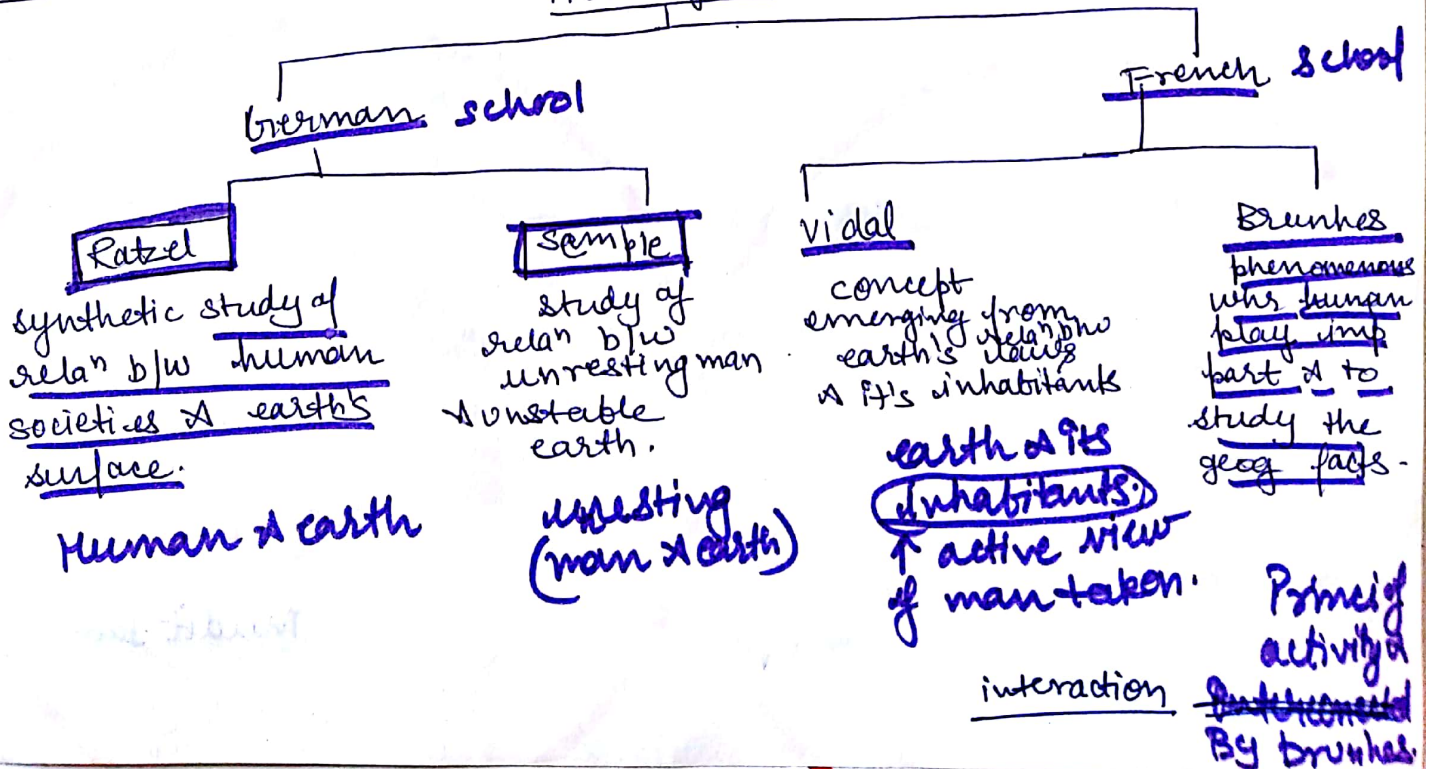 German school
French school
Ratzel
synthetic study of
relaⁿ b/w human
societies & earth's
surface.
Human & earth
Semple
study of
relaⁿ b/w
unresting man
& unstable
earth.
(man & earth)
vidal
concept
emerging from
relaⁿ b/w
earth's laws
& it's inhabitants
earth & its
inhabitants.
↑ active view
of man taken.
Brunhes
phenomenous
human
play imp
part & to
study the
geog facts.
activity
interaction
By brunhes.